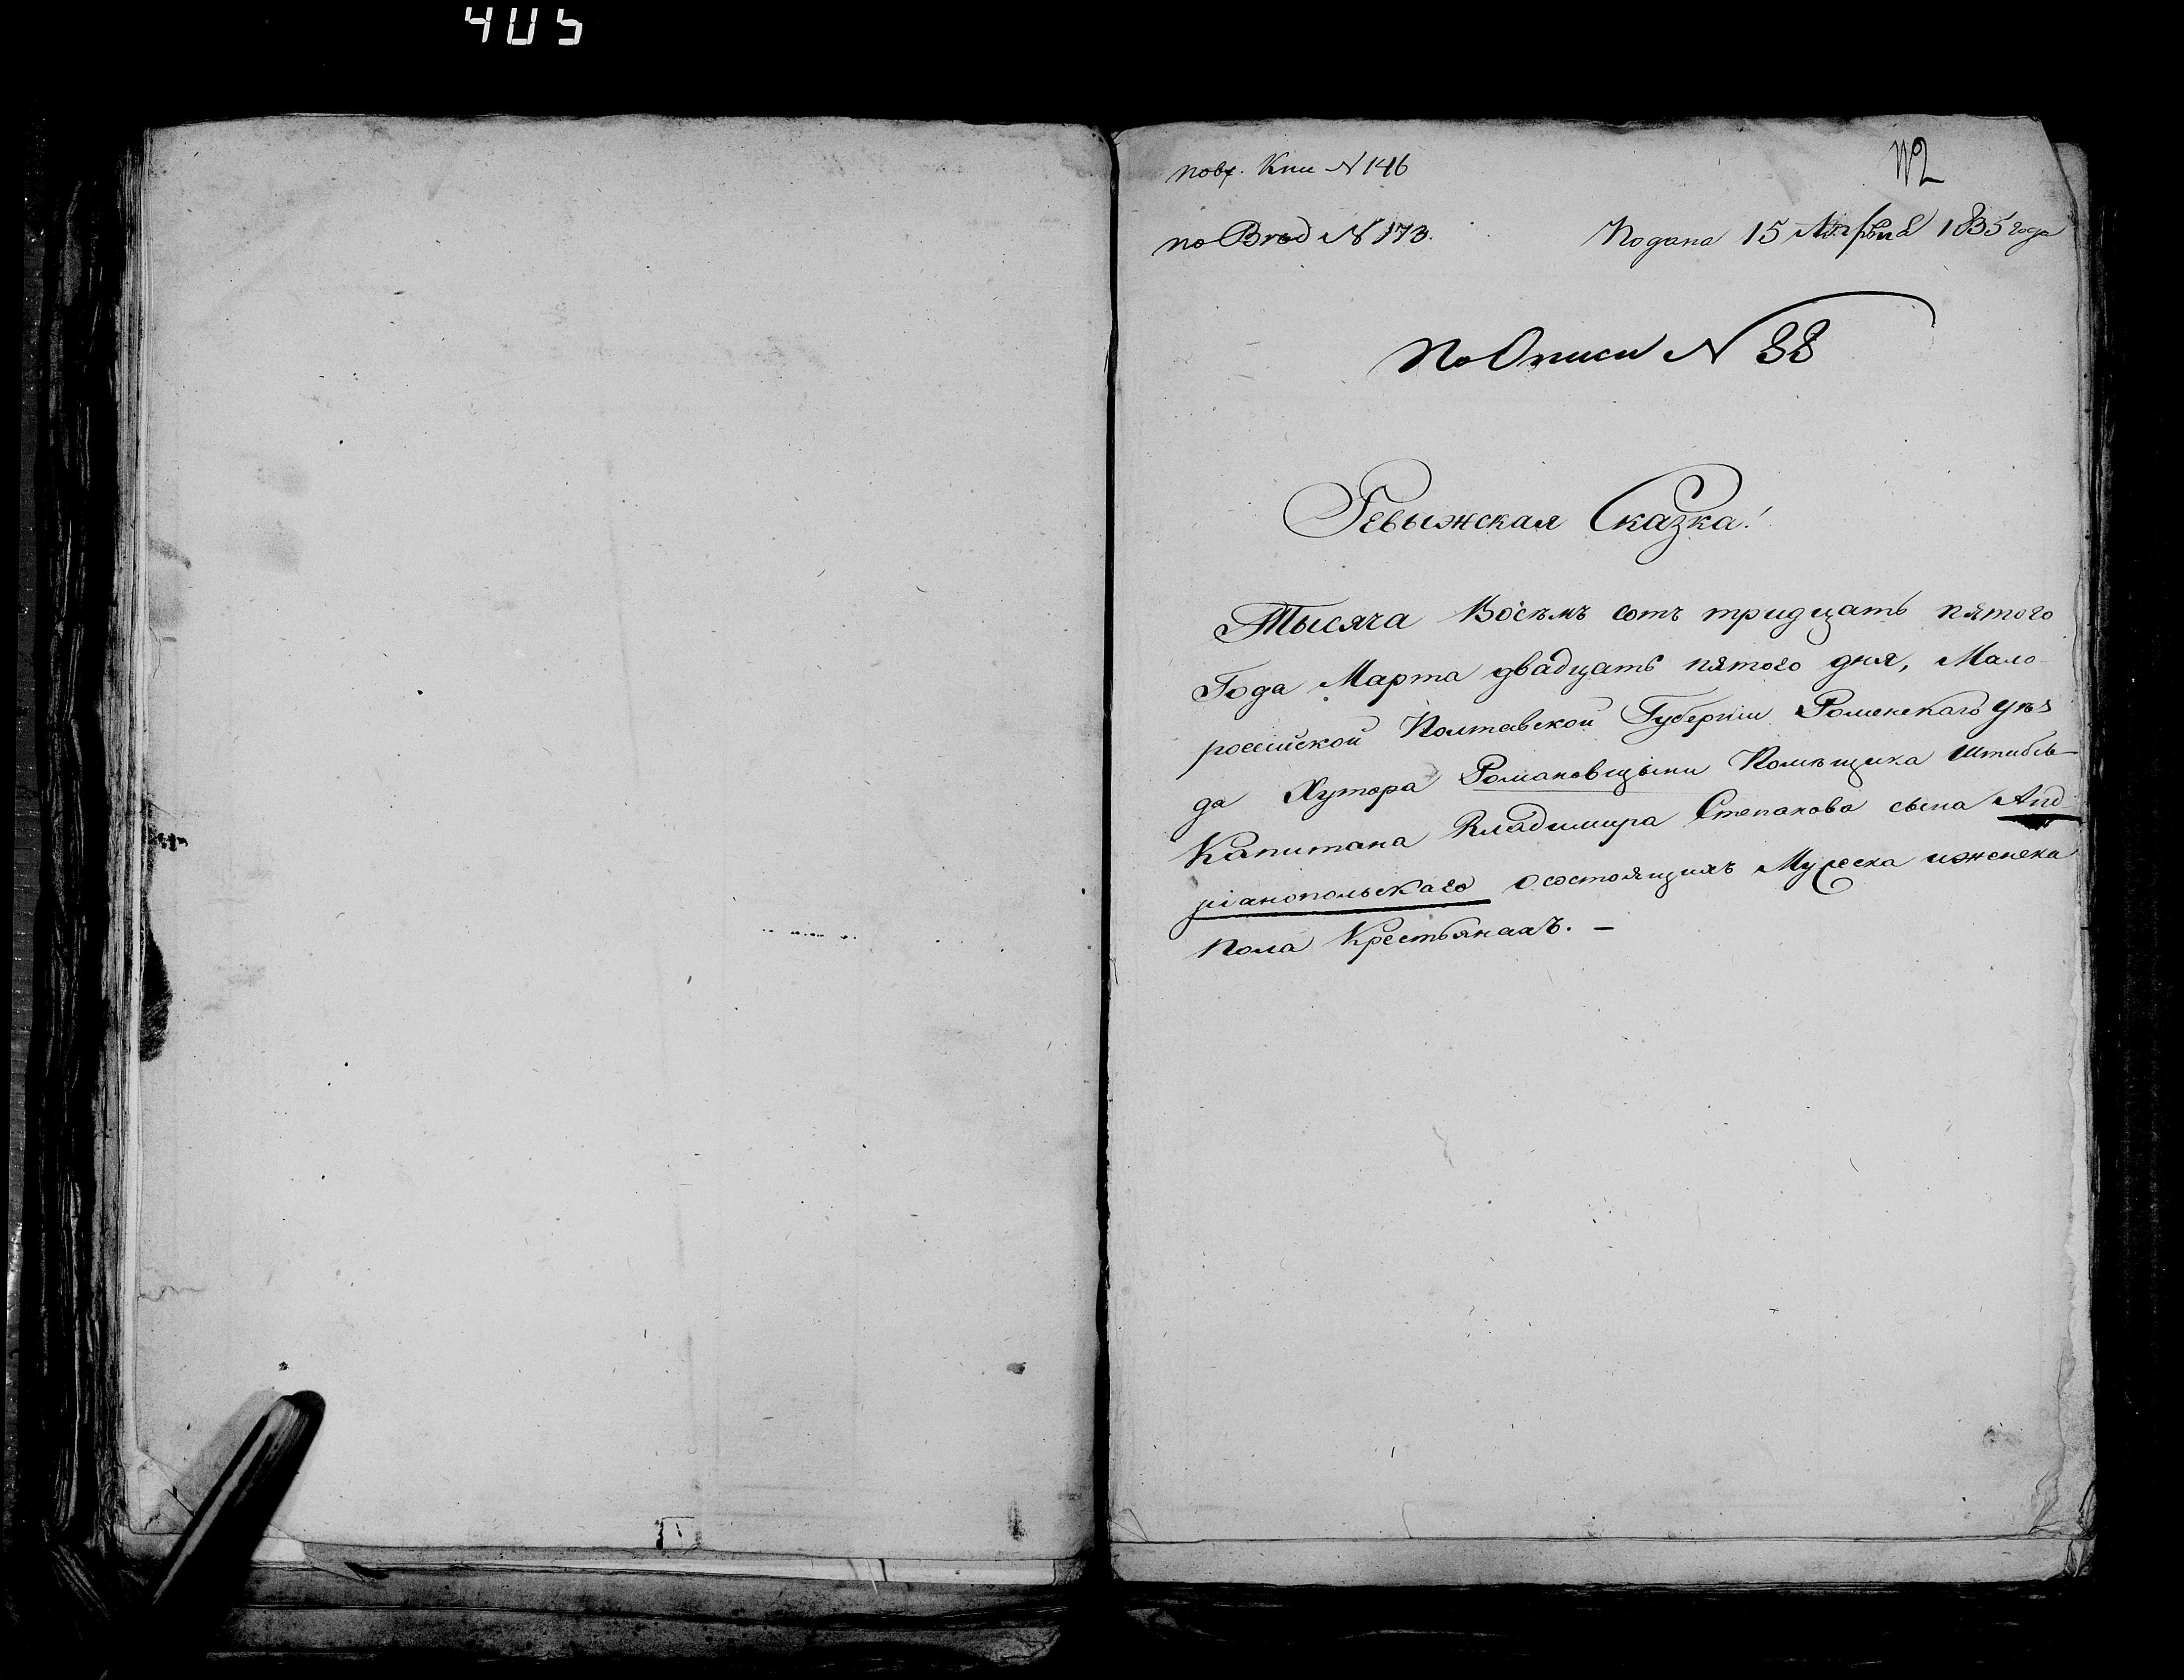 405
112
повх. Кни N 146
по Вѣд N 173.
Подана 15 Апрѣля 1835 года
По Описи N 88
Ревыжская Сказка!
Тысяча Восѣмъ сотъ тридцать пятого
Года Марта двадцать пятого дня, Мало
россійской Полтавской Губерніи Роменскаго уѣз
да Хутора Романовщыни Помѣщика Штабсъ
Капитана Владимира Степанова сына Анд
ріанопольскаго осостоящихъ Мужеска иженска
Пола Крестьянахъ. —